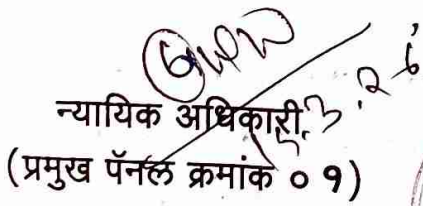 न्यायिक अधिकारी,
(प्रमुख पॅनल क्रमांक ०१)